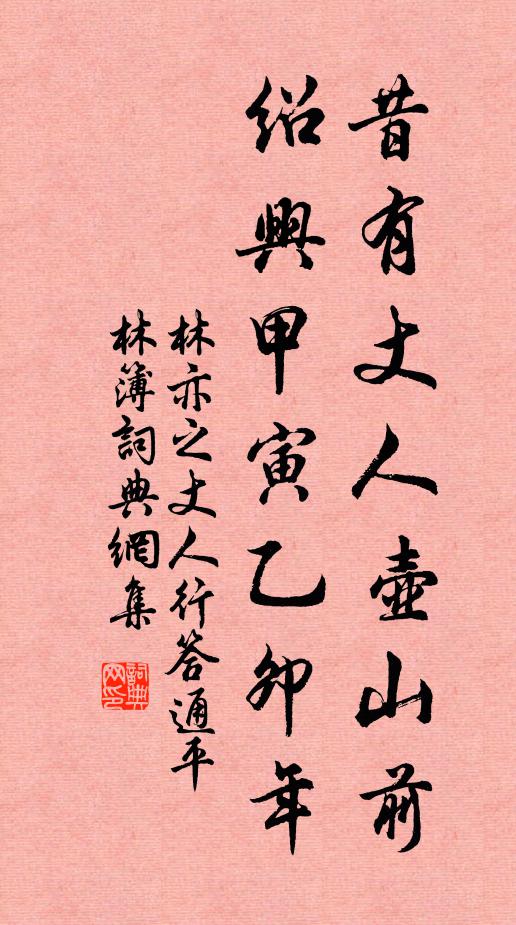 昔有丈人壺山前
紹興甲寅乙卯年
林亦之丈人行答通平
林簿詞典網集
詞典
网印